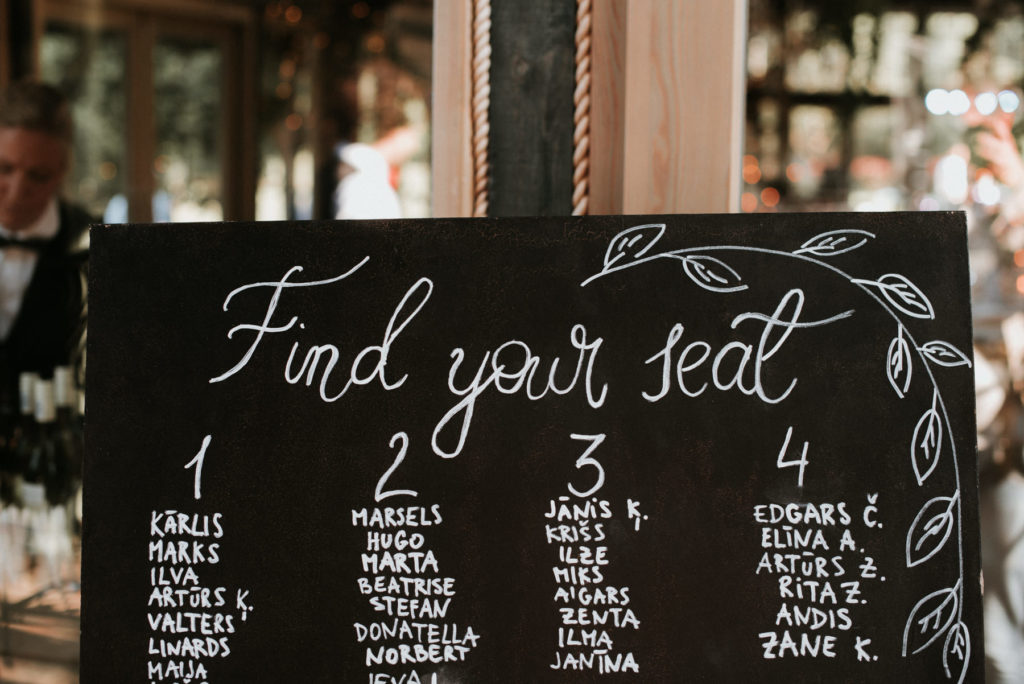 Find your seat
1
KĀRLIS
MARKS
ILVA
ARTŪRS Ķ.
VALTERS
LINARDS
MAIJA
2
MARSELS
HUGO
MARTA
BEATRISE
STEFAN
DONATELLA
NORBERT
IEVA
3
JĀNIS Ķ.
KRIŠS
ILZE
MIKS
AIGARS
ZENTA
ILMA
JANĪNA
4
EDGARS Č.
ELĪNA A.
ARTŪRS Z.
RITA Z.
ANDIS
ZANE K.